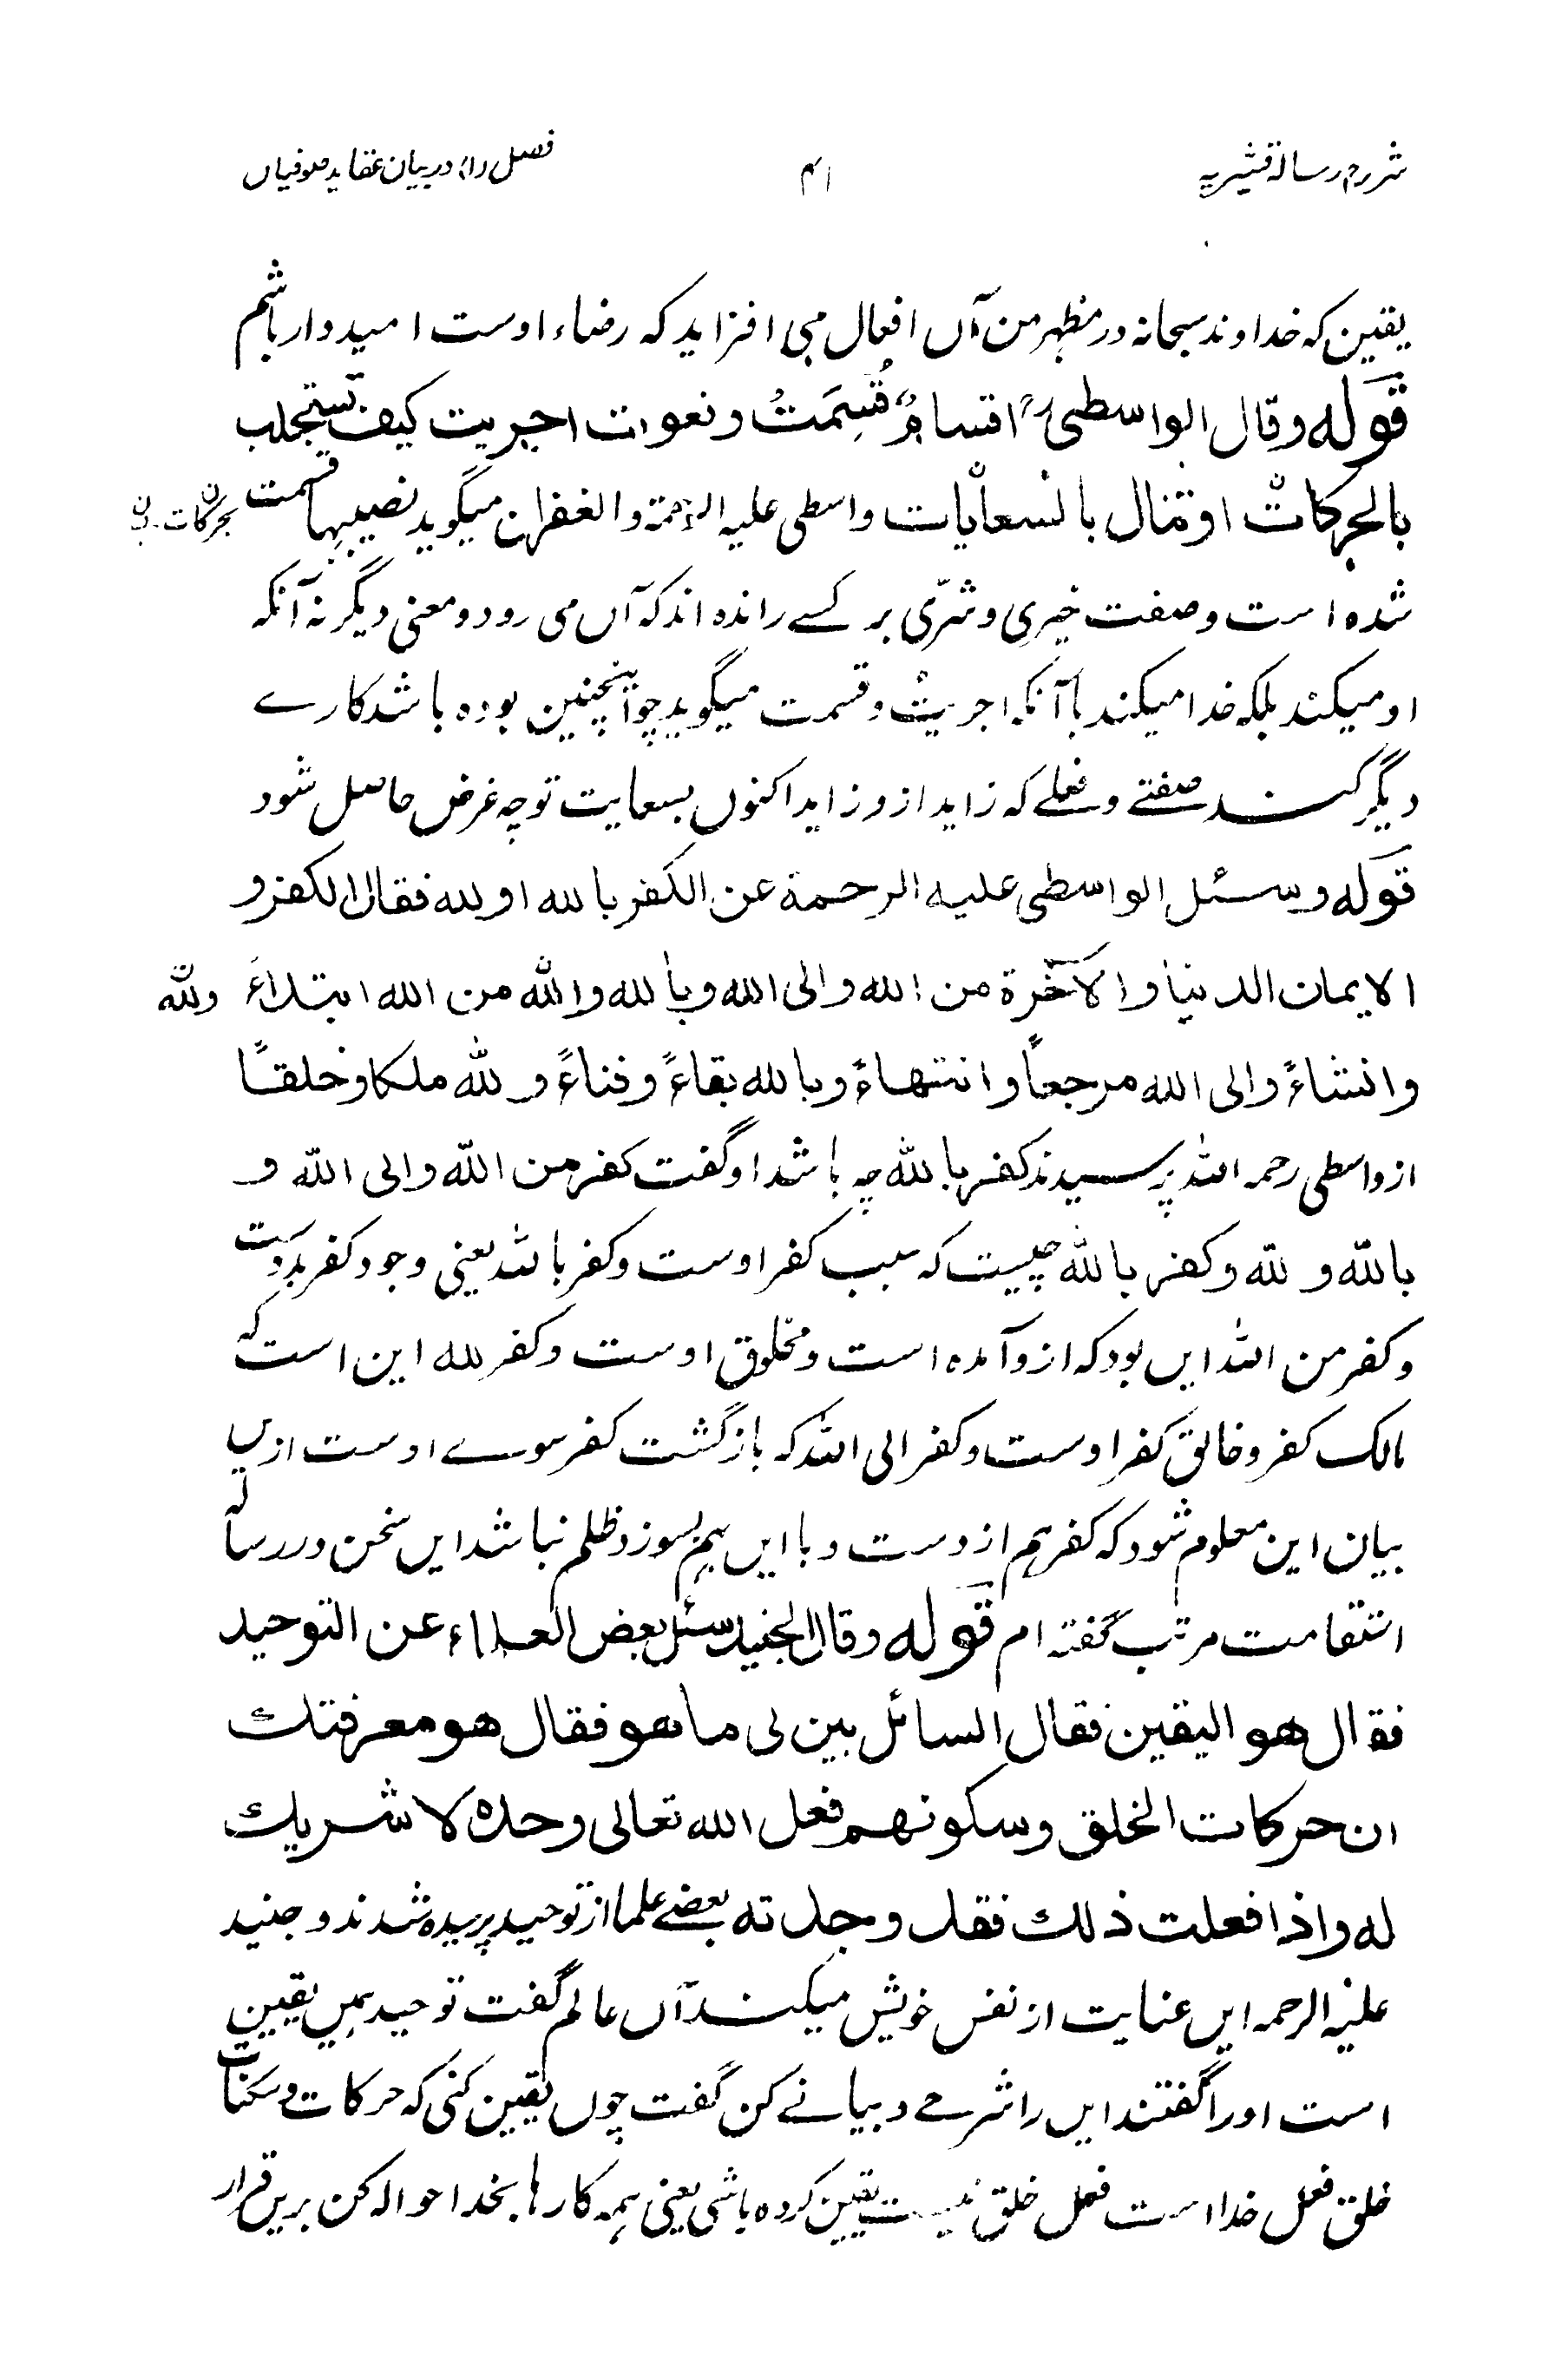 شرح رسالۀ قشیریہ ۴۱ فصل (۱) در بیان عقاید صوفیاں
یقین کہ خداوند سبحانہ در مظہر من آں افعال می افزاید کہ رضاء اوست امیدوار باشم
قولہ وقال الواسطیؒ اقسامٌ قُسِمَتْ ونعوت اجریت کیف تستجلب
بالحرکات او تنال بالسعایات واسطی علیہ الرحمۃ والغفران میگوید نصیبہا قسمت
شدہ است وصفت خیری وشرّی بر کسے راندہ اند کہ آں می رود ومعنی دیگر نہ آنکہ
او میکند بلکہ خدا میکند باآنکہ اجریتْ وقسمت میگوید چو اینچنین بودہ باشد کارے
دیگر کند صفتے و فعلے کہ زاید ازو زاید اکنوں بسعایت تو چہ غرض حاصل شود
قولہ وسئل الواسطی علیہ الرحمۃ عن الکفر باللہ او للہ فقال الکفر و
الایمان الدنیا والآخرۃ من اللہ والی اللہ وباللہ وللہ من اللہ ابتداءً وللہ
وانشاءً والی اللہ مرجعاً وانتهاءً وباللہ بقاءً وفناءً و للہ ملکا وخلقًا
از واسطی رحمہ اللہ پرسیدند کفر باللہ چہ باشد او گفت کفر من اللہ والی اللہ و
باللہ و للہ وکفر باللہ چیست کہ سبب کفر اوست وکفر باللہ یعنی وجود کفر بدوست
وکفر من اللہ ایں بود کہ ازو آمدہ است ومخلوق اوست وکفر للہ این است کہ
مالک کفر وخالق کفر اوست وکفر الی اللہ کہ بازگشت کفر سوے اوست ازیں
بیان این معلوم شود کہ کفر ہم ازوست وبا ایں ہم بسوزد ظلم نباشد ایں سخن در رسالہ
استقامت مرتب گفتہ ام قولہ وقال الجنید سئل بعض العلماء عن التوحید
فقال هو الیقین فقال السائل بین لی ما هو فقال هو معرفتك
ان حرکات الخلق وسکونهم فعل اللہ تعالی وحدہ لا شریك
له واذا فعلت ذلك فقد وحدته بعضے علما از توحید پرسیدہ شدند و جنید
علیہ الرحمہ ایں عنایت از نفس خویش میکند آں عالم گفت توحید ہمیں یقین
است اورا گفتند ایں را شرحے وبیانے کن گفت چوں یقین کنی کہ حرکات وسکنات
خلق فعل خدا است فعل خلق نیست یقین کردہ باشی یعنی ہمہ کارہا بخدا حوالہ کن بریں قرار